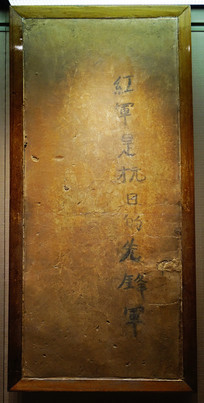 紅軍是抗日的先鋒軍